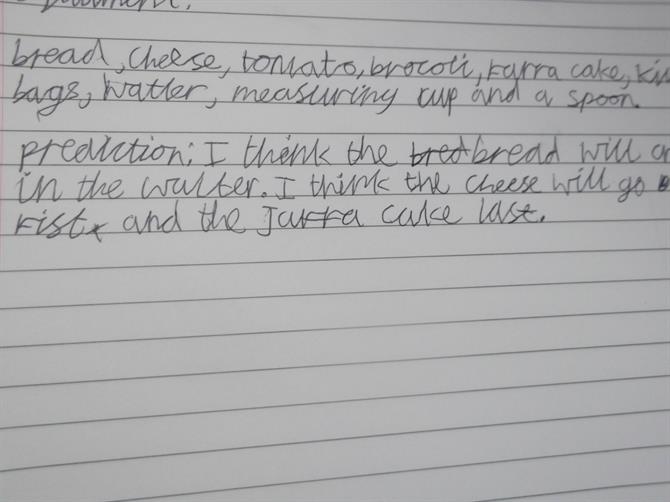 bread, cheese, tomato, brocoli, Karra cake,
bags, watter, measuring cup and a spoon.
prediction: I think the bread will
in the walter. I think the cheese will go
rist and the Jarra cake last.